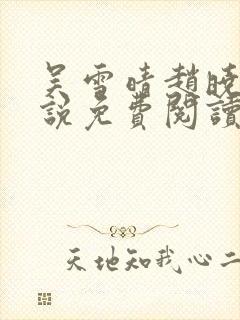 吴雪晴趙曉
說免費閱讀
天地知我心二